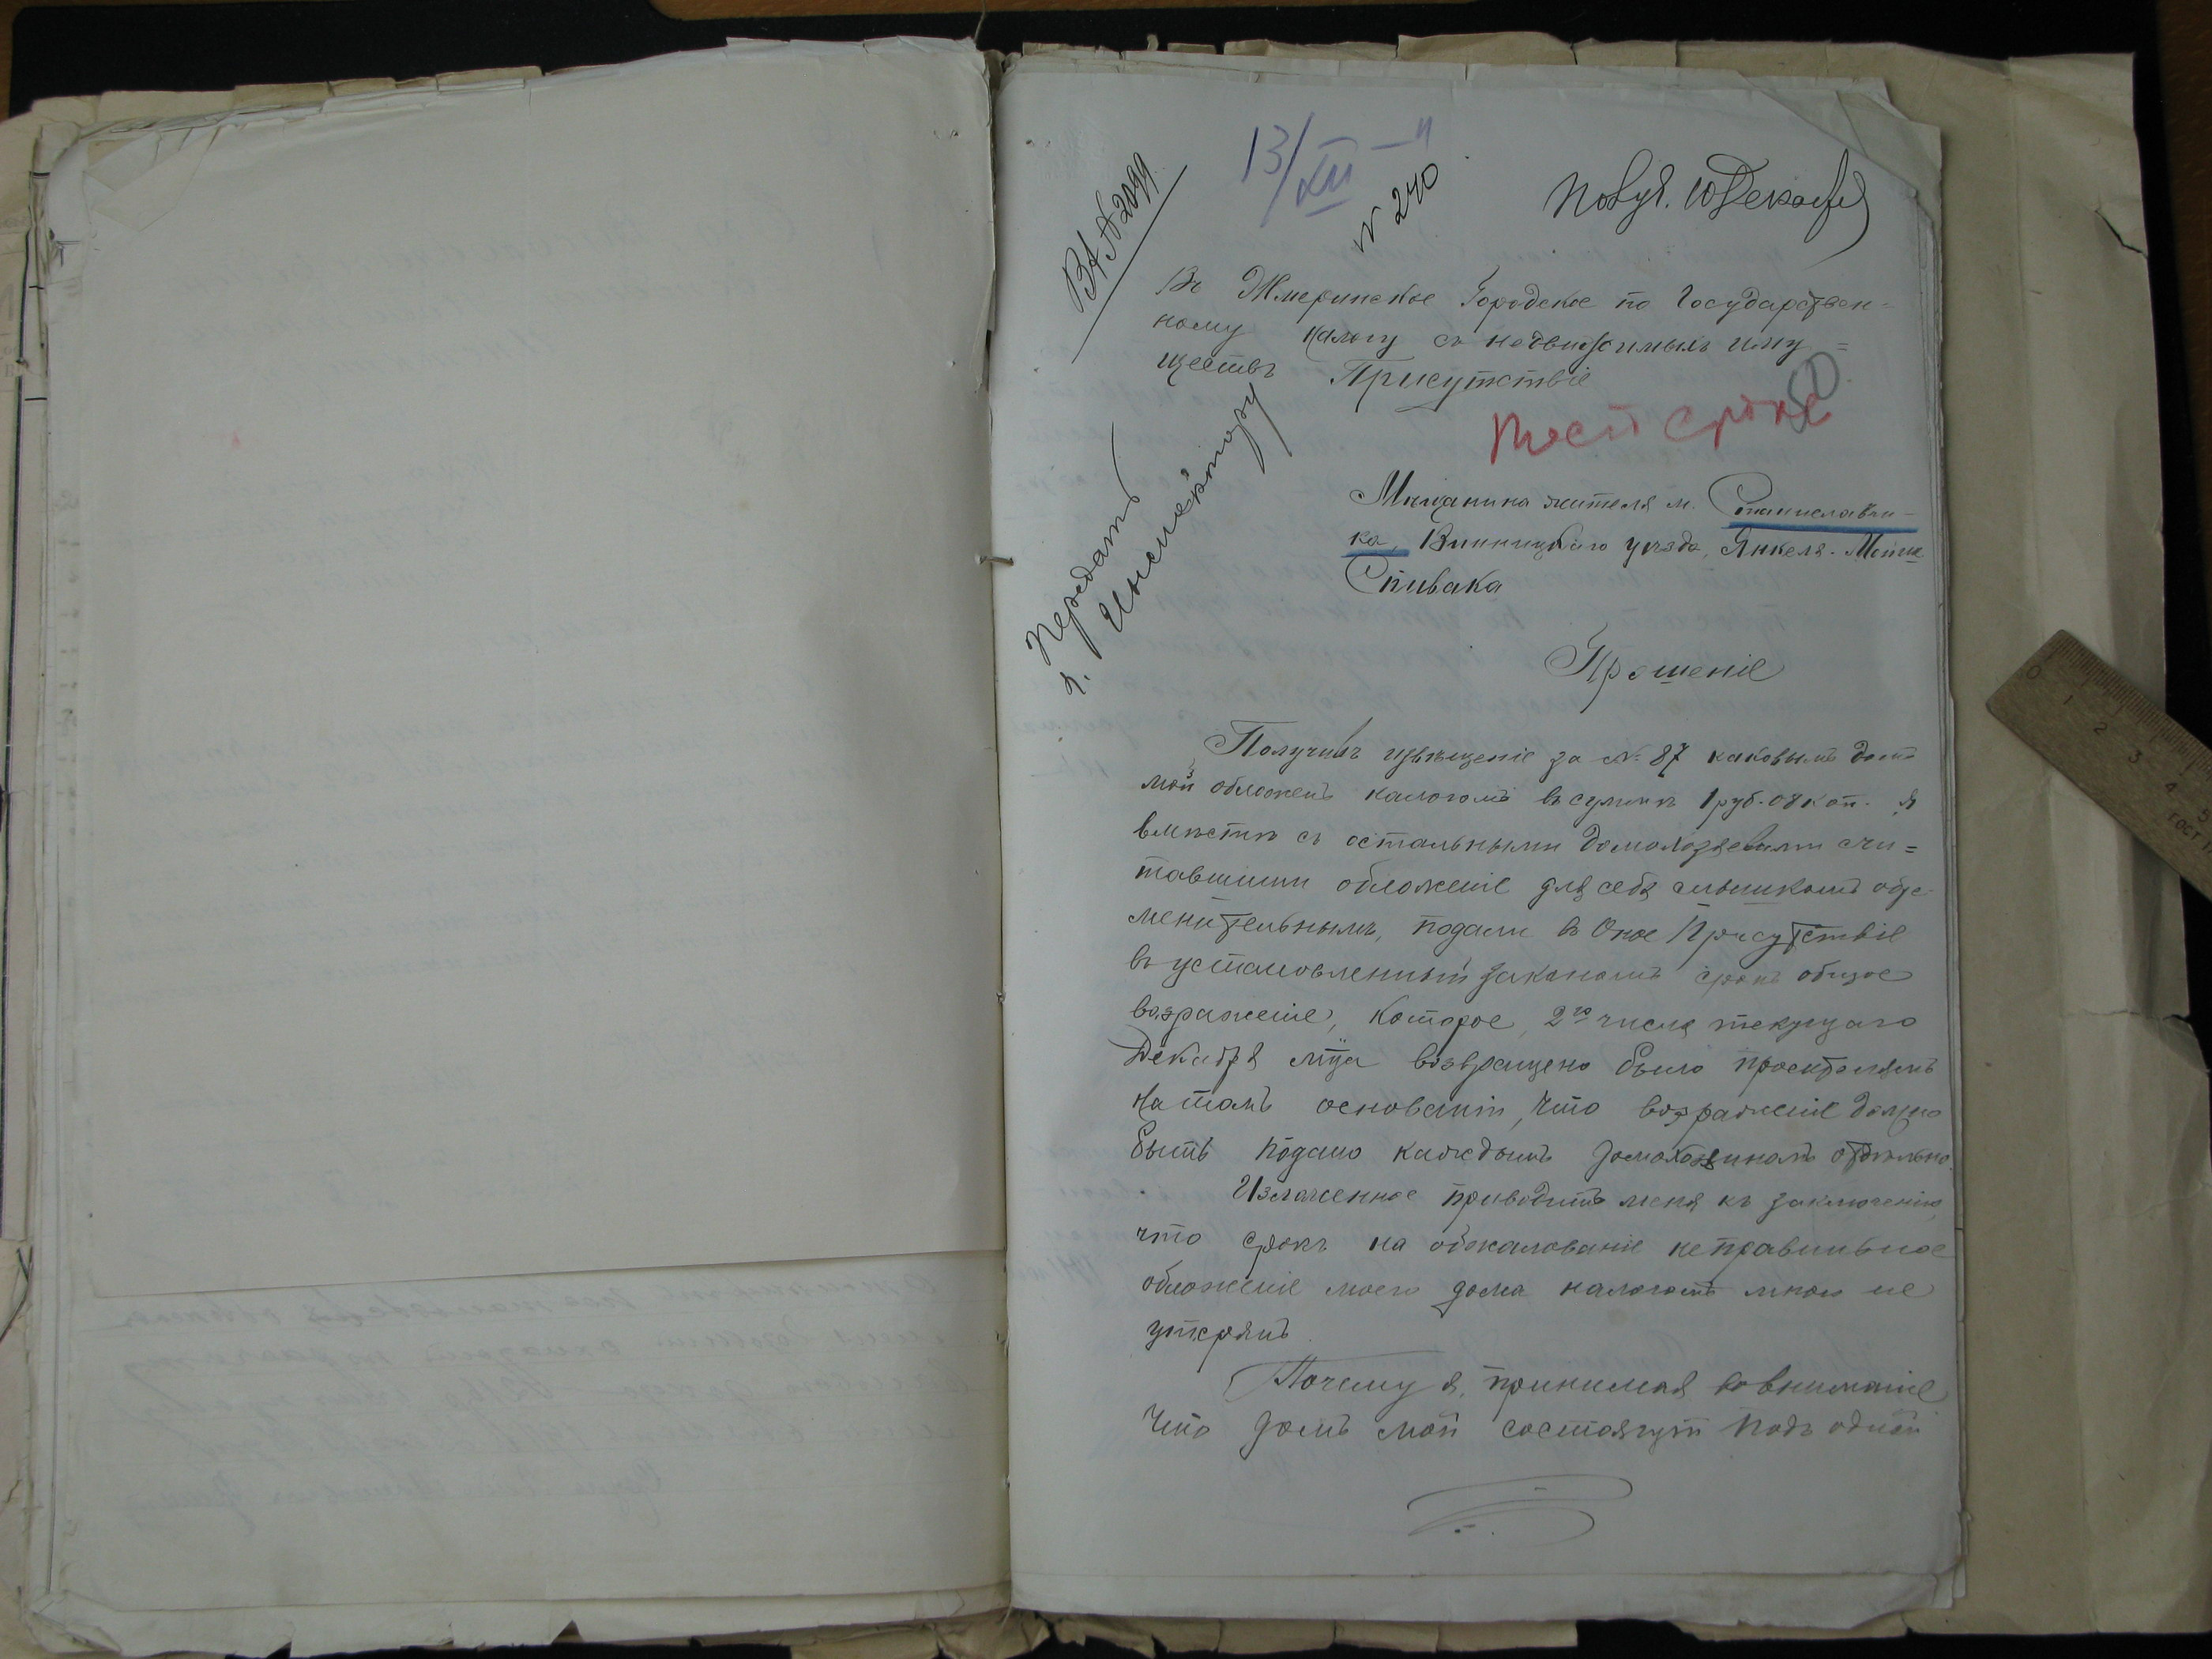 13/XII
№ 240
Вх № 2099
Получ. 10 Декабря
Въ Жмеринское Городское по Государствен-
ному налогу съ недвижимыхъ иму=
ществъ Присутствіе
послѣ срока
Передать
г. Инспектору
Мѣщанина жителя м. Станиславчи-
ка, Винницкаго уѣзда, Янкеля-Мошк
Спивака
Прошеніе
Получивъ извѣщеніе за № 87 каковымъ домъ
мой обложенъ налогомъ въ суммѣ 1 руб. 08 коп. я
вмѣстѣ съ остальными домохозяевами счи=
тавшими обложеніе для себя слишкомъ обре-
менительнымъ, подали въ Оное Присутствіе
въ установленный закономъ срокъ общое
возраженіе, которое 2го числа текущаго
Декабря мца возвращено было просителямъ
на томъ основаніи, что возраженіе должно
быть подано каждымъ домохозяиномъ отдѣльно.
Изложенное приводитъ меня къ заключенію,
что срокъ на обжалованіе неправильное
обложеніе моего дома налогомъ мною не
утерянъ.
Почему я, принимая во вниманіе
что домъ мой состоящій подъ одной